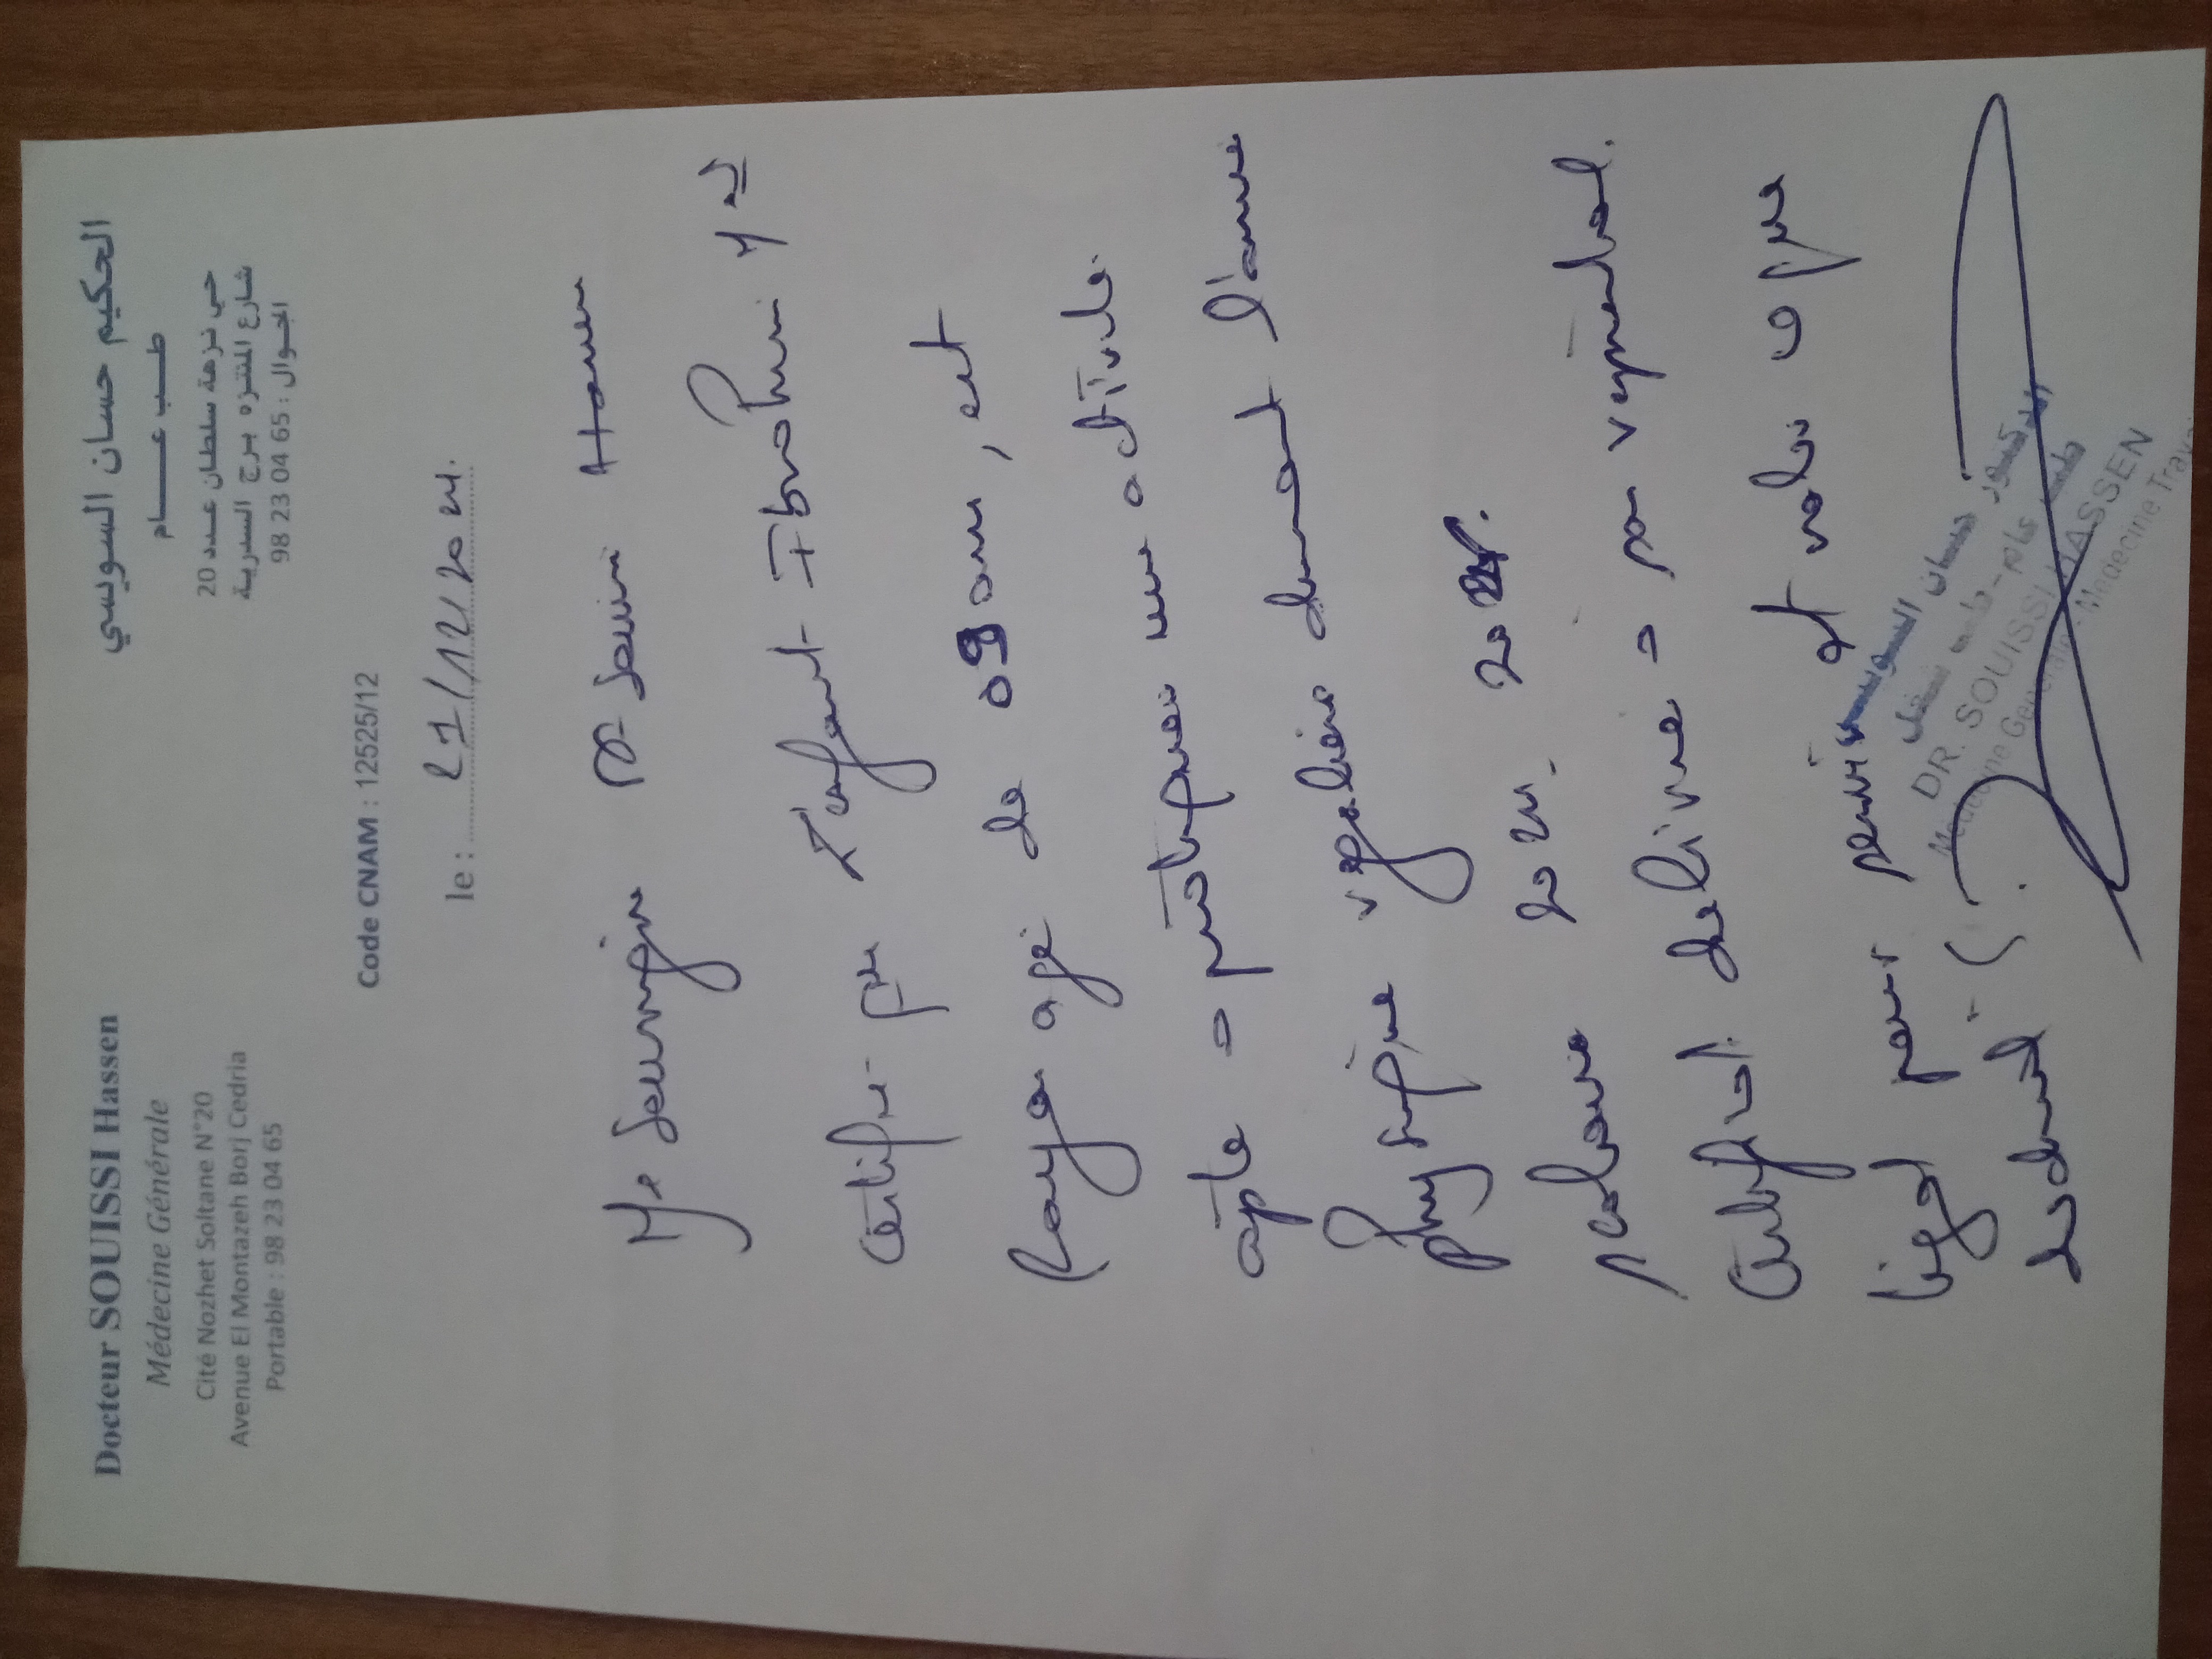 Docteur SOUISSI Hassen
Médecine Générale
Cité Nozhet Soltane N°20
Avenue El Montazeh Borj Cedria
Portable : 98 23 04 65
الحكيم حسان السويسي
طب عام
حي نزهة سلطان عدد 20
شارع المنتزه برج السدرية
الجوال : 98 23 04 65
Code CNAM : 12525/12
le : 21/12/2024.
Je soussigné Dr Souissi Hassen
Certifie que l'enfant Ibrahim
Raya agé de 09 ans, est
apte à pratiquer une activité
physique régulière durant l'année
scolaire 2024. 2025.
Certificat délivré à sa représentant
légal pour servir et valoir ce que
de droit
الدكتور حسان السويسي
DR. SOUISSI HASSEN
Médecine Générale - Médecine Travail